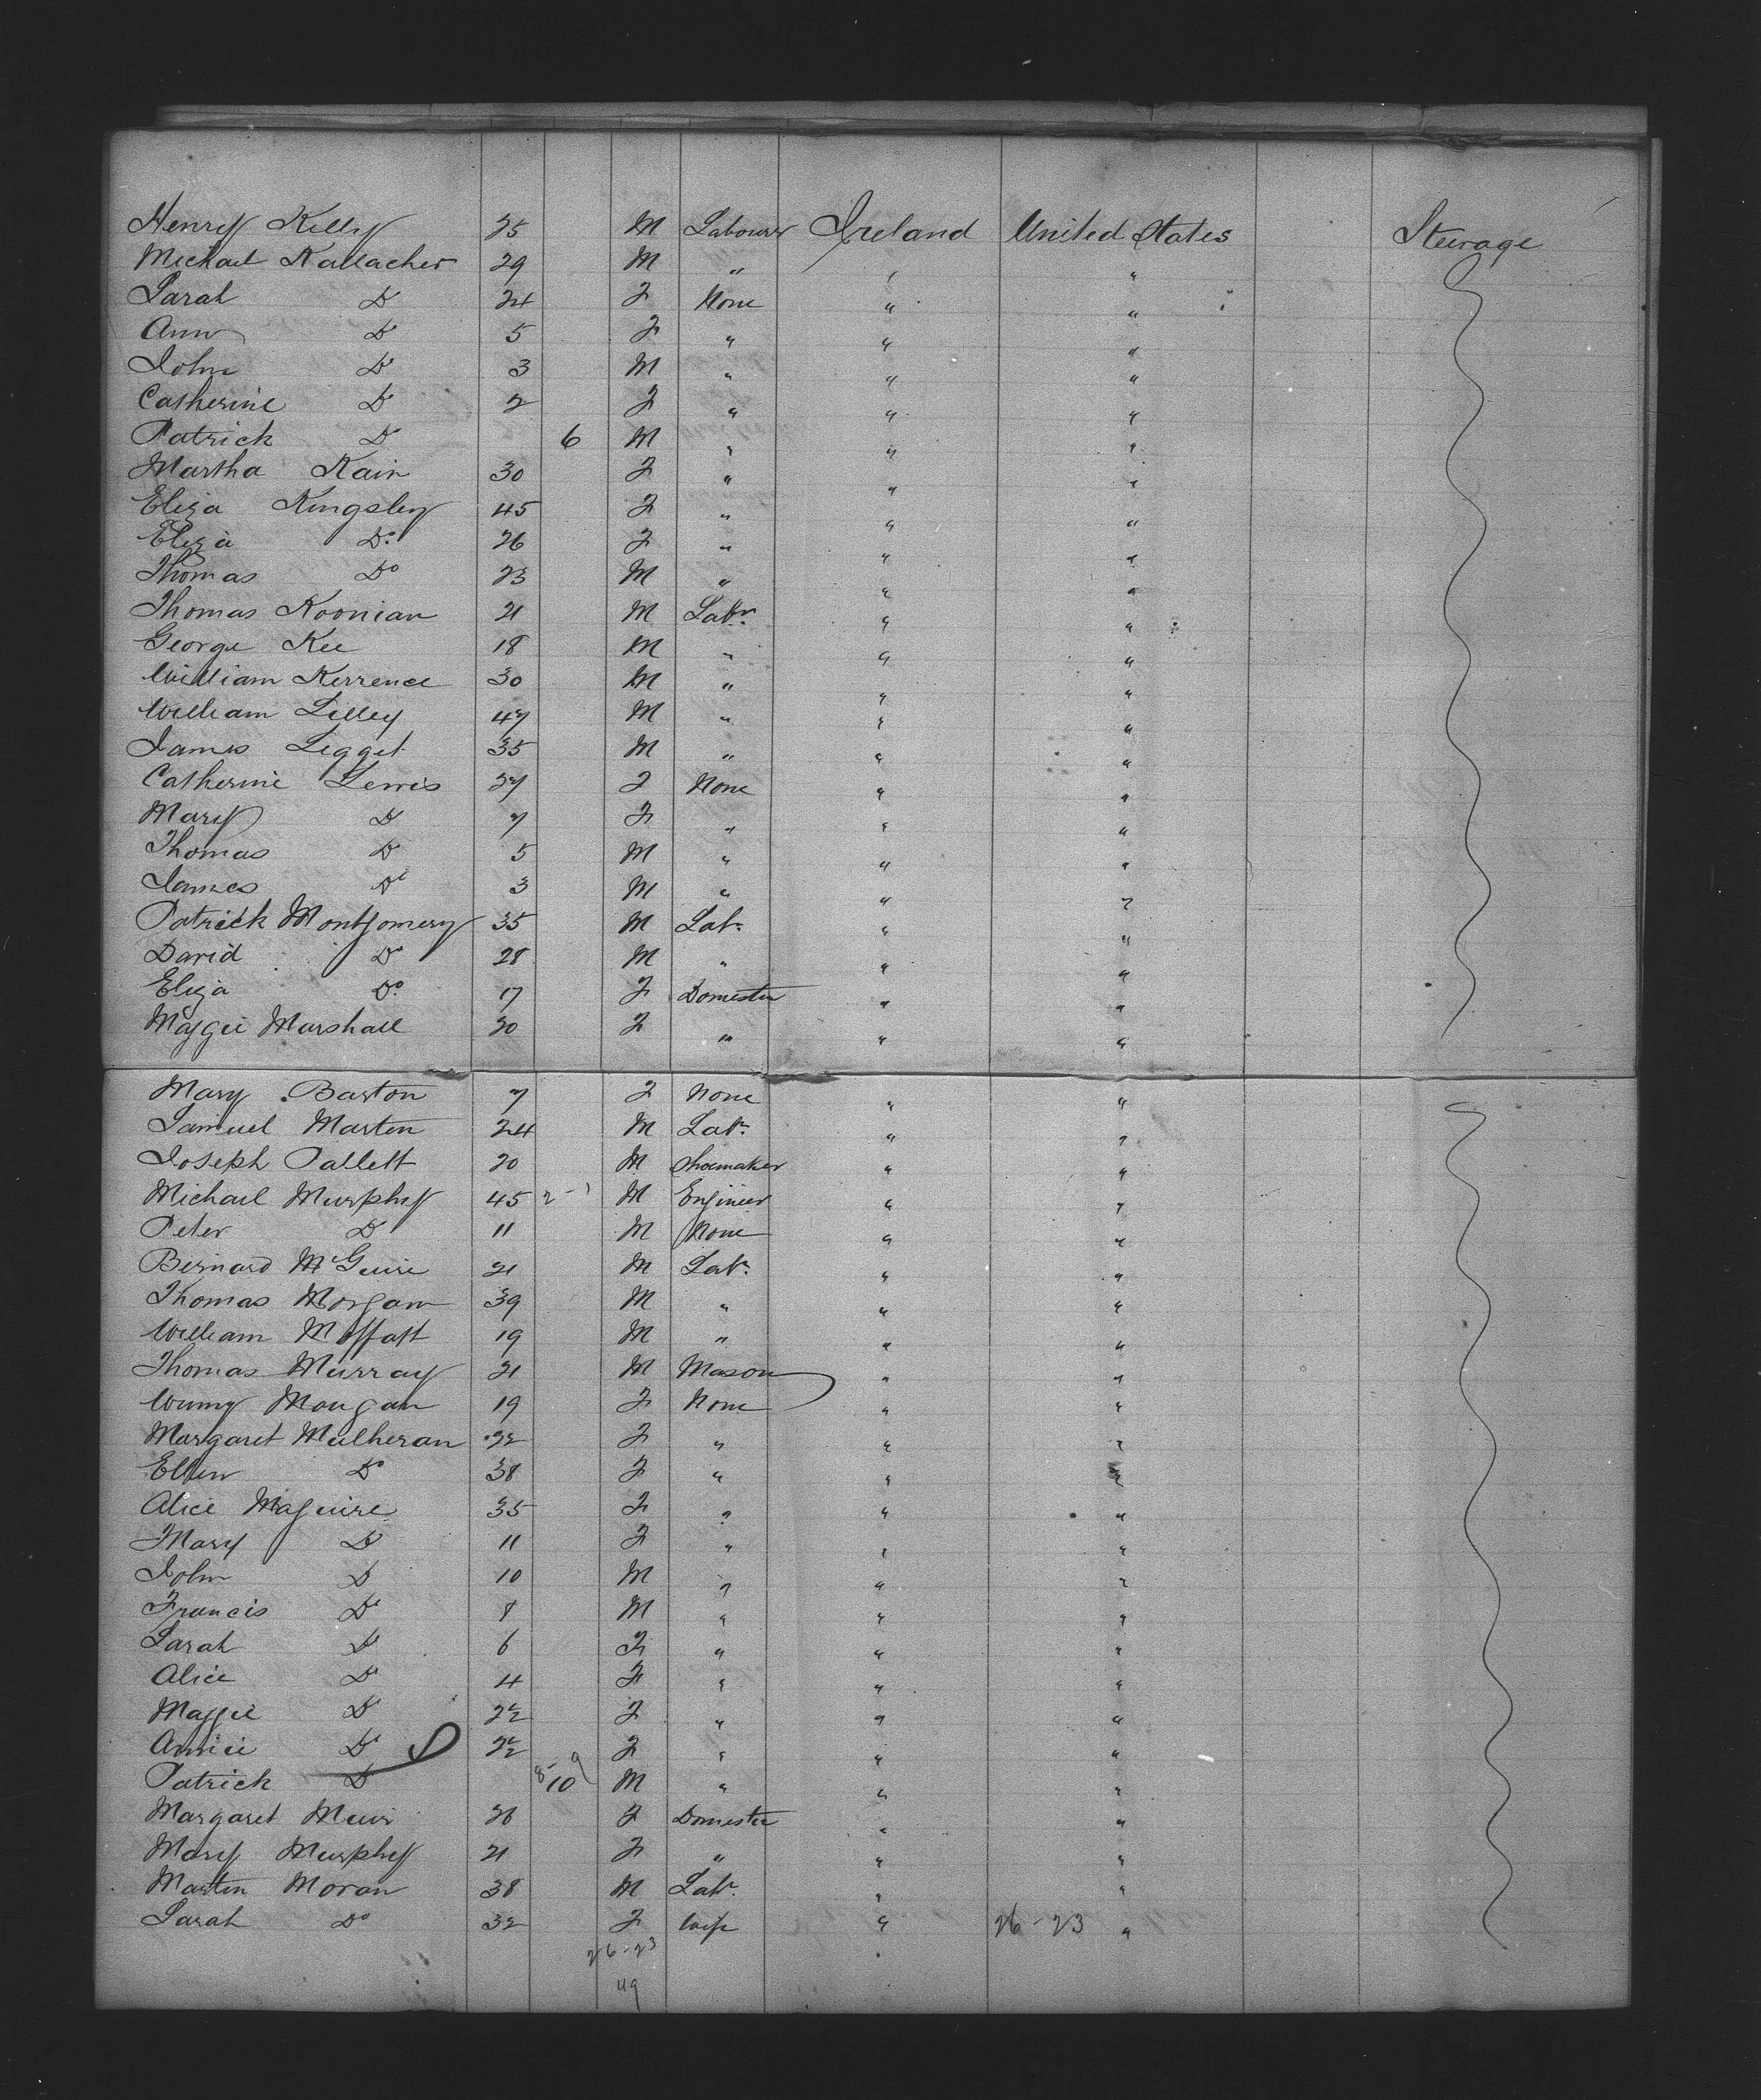 Henry Kelly 25 M Labourer Ireland United States Steerage
Michael Kallacher 29 M " " "
Sarah Do 24 F None " "
Ann Do 5 F " " "
John Do 3 M " " "
Catherine Do 2 F " " "
Patrick Do 6 M " " "
Martha Kain 30 F " " "
Eliza Kingsley 45 F " " "
Eliza Do 26 F " " "
Thomas Do 23 M " " "
Thomas Koonian 21 M Labr. " "
George Kee 18 M " " "
William Kerrence 30 M " " "
William Lilley 47 M " " "
James Legget 35 M " " "
Catherine Lewis 27 F None " "
Mary Do 7 F " " "
Thomas Do 5 M " " "
James Do 3 M " " "
Patrick Montgomery 35 M Labr " "
David Do 28 M " " "
Eliza Do 17 F Domestic " "
Maggie Marshall 20 F " " "
Mary Barton 7 F None " "
Samuel Marten 24 M Labr. " "
Joseph Pallett 20 M Shoemaker " "
Michael Murphy 45 2-1 M Engineer " "
Peter Do 11 M None " "
Bernard McGuire 21 M Labr. " "
Thomas Morgan 39 M " " "
William Moffatt 19 M " " "
Thomas Murray 21 M Mason " "
Winny Mongan 19 F None " "
Margaret Mulheran 22 F " " "
Ellen Do 38 F " " "
Alice Maguire 35 F " " "
Mary Do 11 F " " "
John Do 10 M " " "
Francis Do 8 M " " "
Sarah Do 6 F " " "
Alice Do 4 F " " "
Maggie Do 2½ F " " "
Annie Do 2½ F " " "
Patrick Do 10 M " " "
Margaret Muir 26 F Domestic " "
Mary Murphy 21 F " " "
Martin Moran 38 M Labr. " "
Sarah Do 32 F Wife " 26-23 "
26-23
49